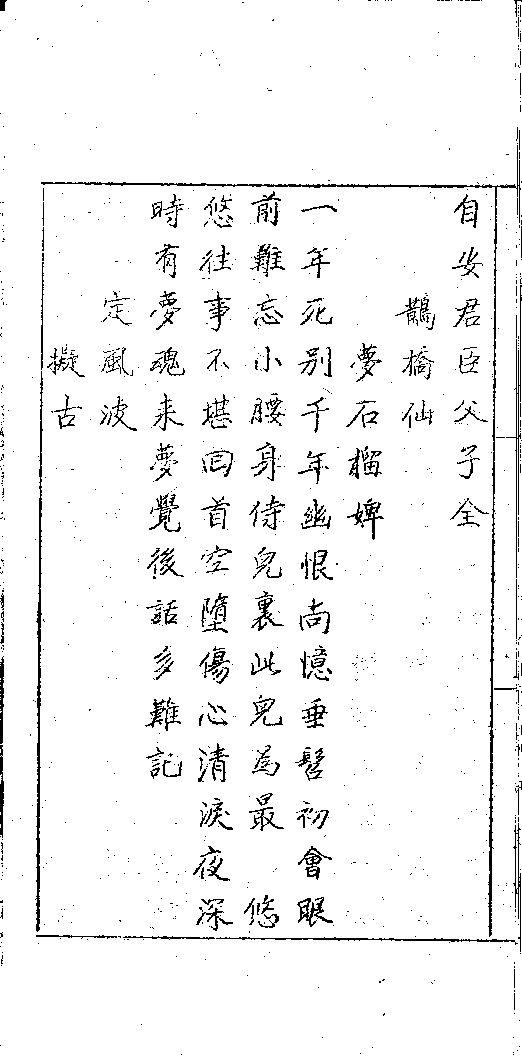 自安君臣父子全
鵲橋仙
夢石榴婢
一年死别千年幽恨尚憶垂髫初會眼
前難忘小腰身侍皃裏此皃為最　悠
悠往事不堪回首空墮傷心清淚夜深
時有夢魂来夢覺後話多難記
定風波
擬古